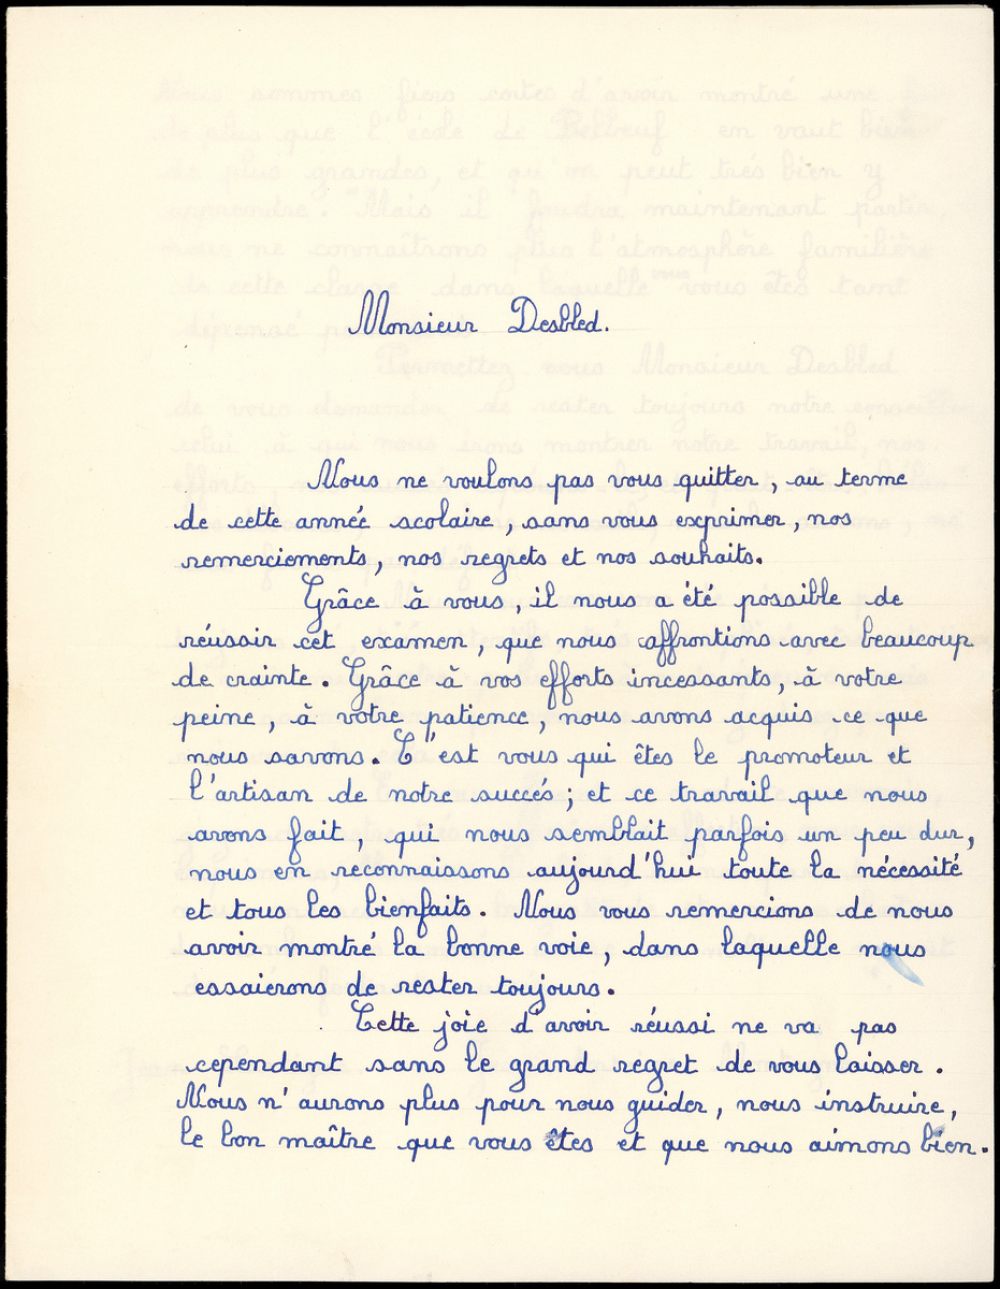 Monsieur Desbled.
Nous ne voulons pas vous quitter, au terme
de cette année scolaire, sans vous exprimer, nos
remerciements, nos regrets et nos souhaits.
Grâce à vous, il nous a été possible de
réussir cet examen, que nous affrontions avec beaucoup
de crainte. Grâce à vos efforts incessants, à votre
peine, à votre patience, nous avons acquis ce que
nous savons. C'est vous qui êtes le promoteur et
l'artisan de notre succés; et ce travail que nous
avons fait, qui nous semblait parfois un peu dur,
nous en reconnaissons aujourd'hui toute la nécessité
et tous les bienfaits. Nous vous remercions de nous
avoir montré la bonne voie, dans laquelle nous
essaierons de rester toujours.
Cette joie d'avoir réussi ne va pas
cependant sans le grand regret de vous laisser.
Nous n'aurons plus pour nous guider, nous instruire,
le bon maître que vous êtes et que nous aimons bien.